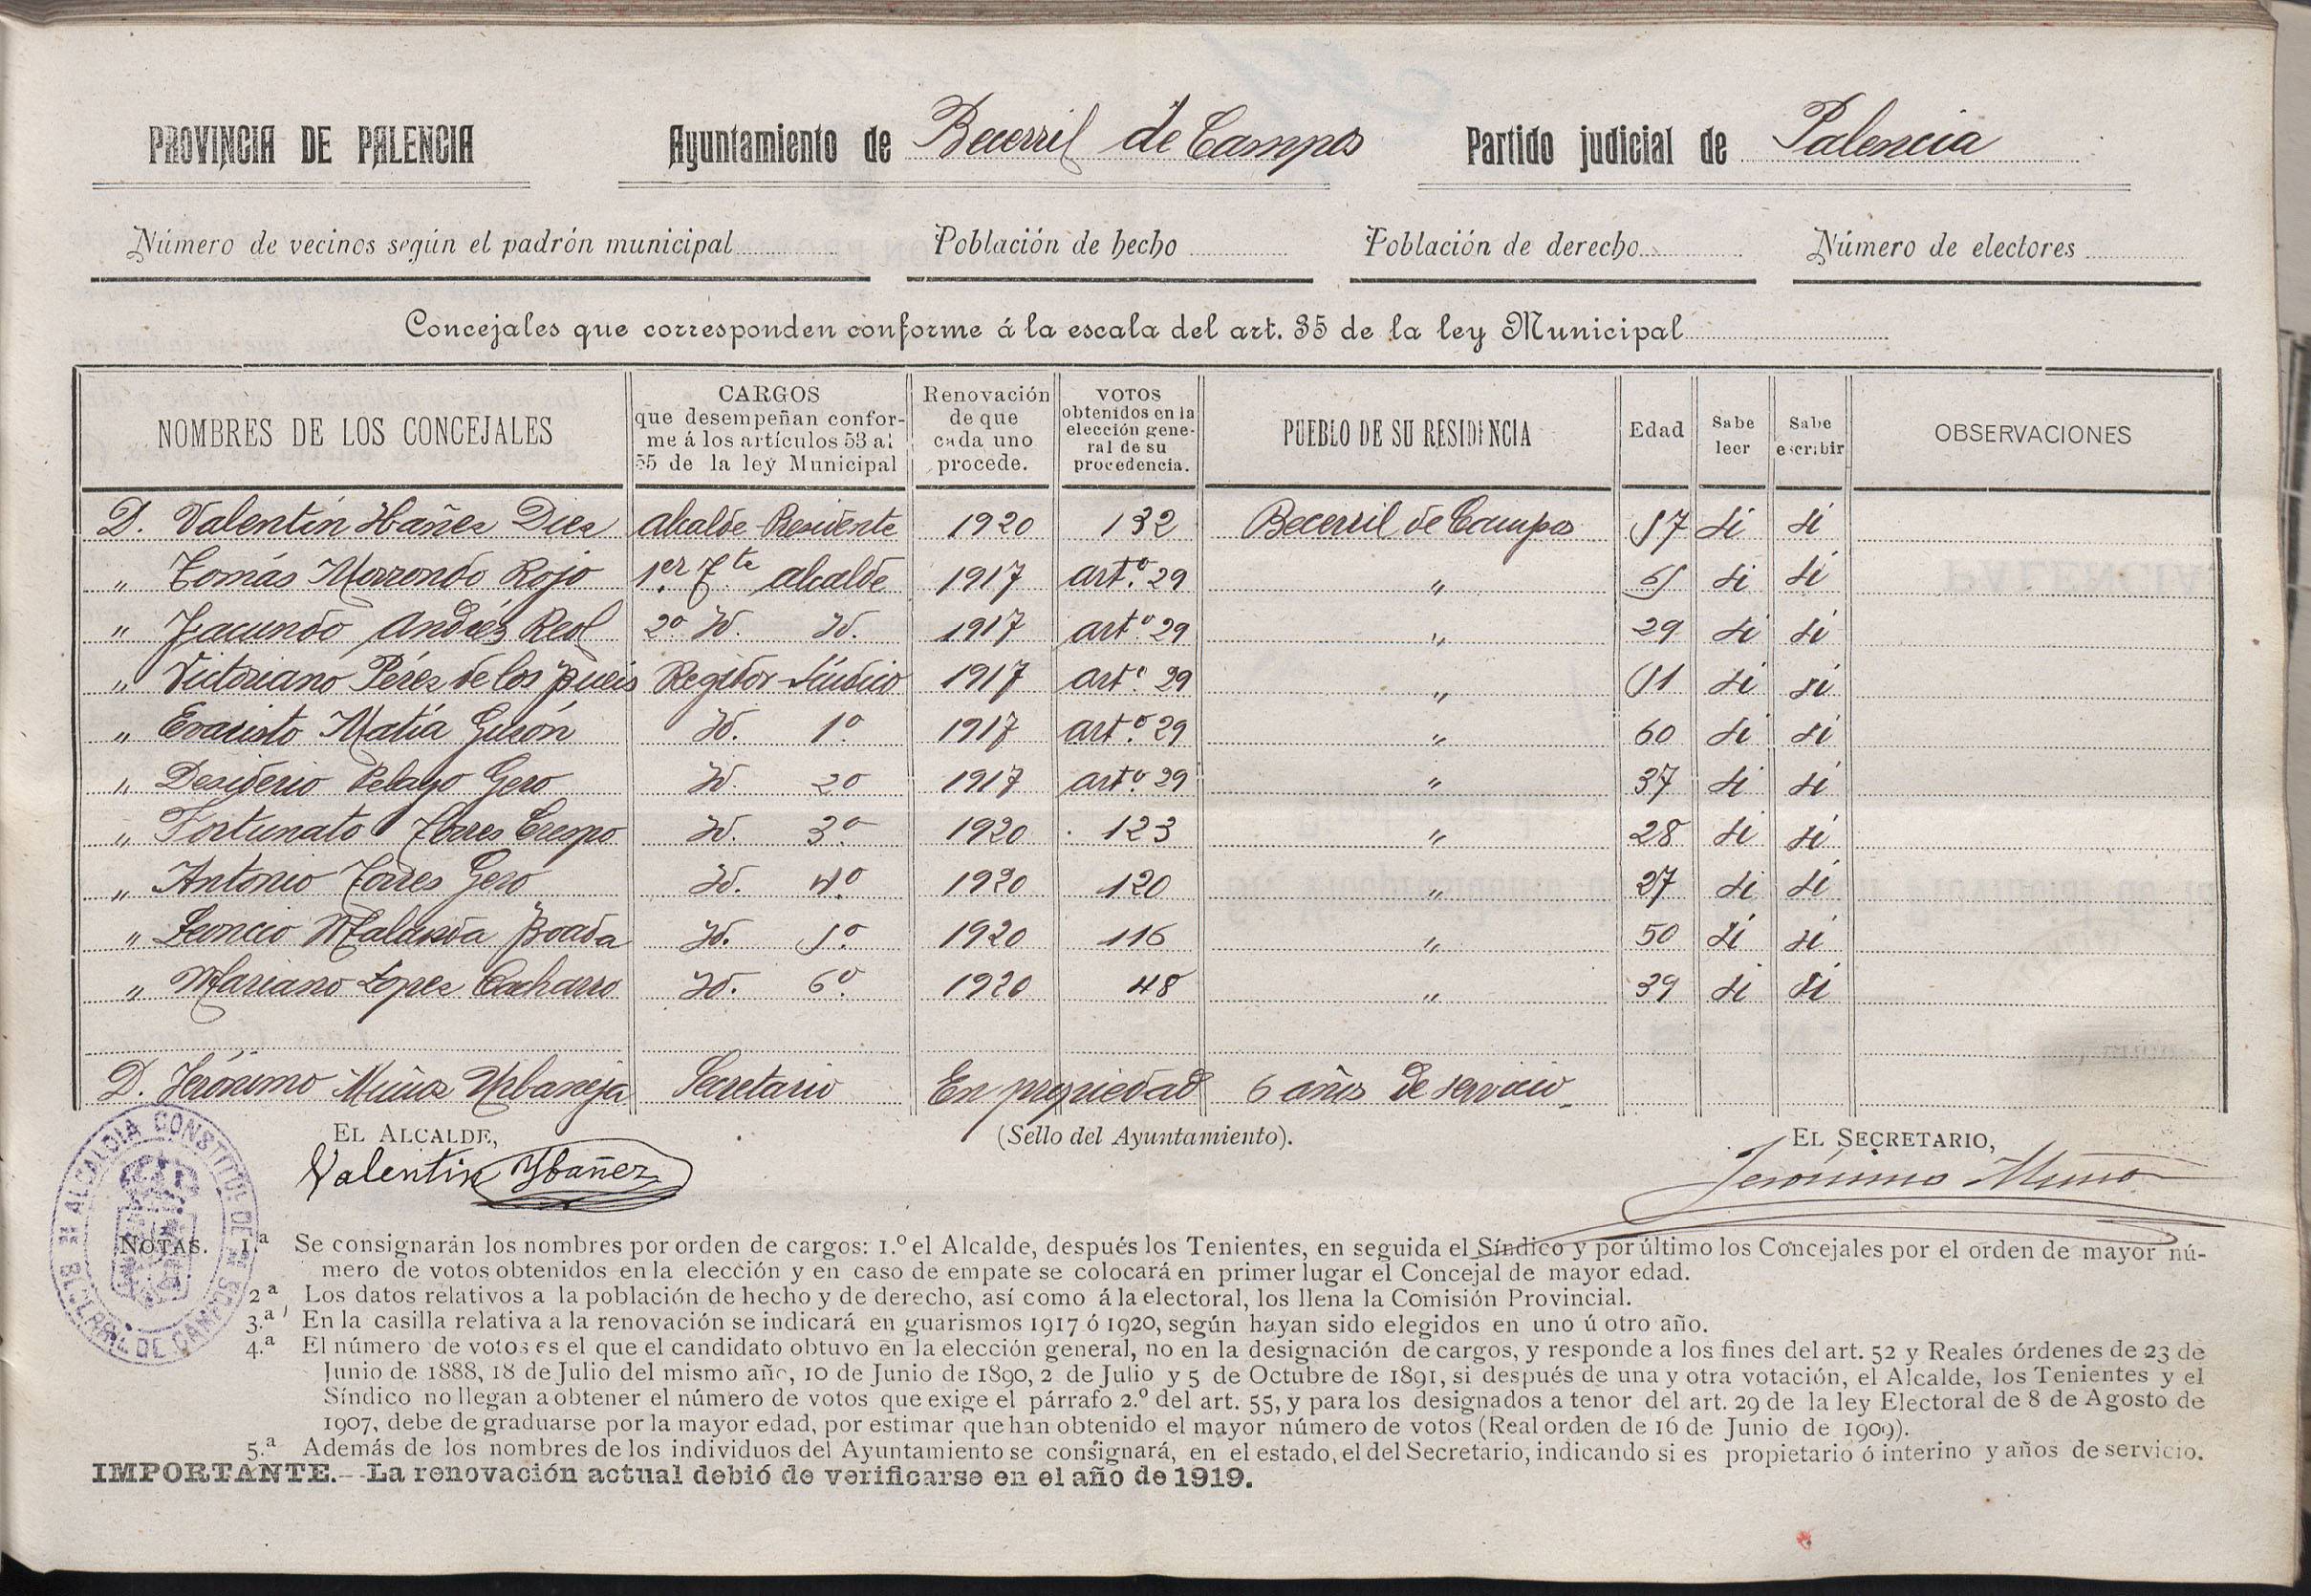 PROVINCIA DE PALENCIA Ayuntamiento de Becerril de Campos Partido judicial de Palencia
Número de vecinos según el padrón municipal Población de hecho Población de derecho Número de electores
Concejales que corresponden conforme á la escala del art. 35 de la ley Municipal
NOMBRES DE LOS CONCEJALES
CARGOS
que desempeñan confor-
me á los artículos 53 al
55 de la ley Municipal
Renovación
de que
cada uno
procede.
VOTOS
obtenidos en la
elección gene-
ral de su
procedencia.
PUEBLO DE SU RESIDENCIA
Edad
Sabe
leer
Sabe
escribir
OBSERVACIONES
D. Valentín Ibañez Diez Alcalde-Presidente 1920 132 Becerril de Campos 57 si si
„ Tomás Morrondo Rojo 1er Tte alcalde 1917 artº. 29 „ 65 si si
„ Facundo Andrés Reol 2º Id. Id. 1917 artº. 29 „ 29 si si
„ Victoriano Pérez de los Regidor Síndico 1917 artº. 29 „ 51 si si
„ Evaristo Matía Gusón Id. 1º. 1917 artº. 29 „ 60 si si
„ Desiderio Pelayo Gero Id. 2º 1917 artº. 29 „ 37 si si
„ Fortunato Crespo Id. 3º 1920 123 „ 28 si si
„ Antonio Torres Gero Id. 4º 1920 120 „ 27 si si
„ Leoncio Malanda Boada Id. 5º. 1920 116 „ 50 si si
„ Mariano Lopez Cacharro Id. 6º. 1920 48 „ 39 si si
D. Jerónimo Muñoz Urbaneja Secretario En propiedad 6 años de servicio
EL ALCALDE, (Sello del Ayuntamiento). EL SECRETARIO,
Valentin Ybañez Jerónimo Muñoz
ALCALDIA CONSTITUL. DE BECERRIL DE CAMPOS
NOTAS. 1.ª Se consignarán los nombres por orden de cargos: 1.º el Alcalde, después los Tenientes, en seguida el Síndico y por último los Concejales por el orden de mayor nú-
mero de votos obtenidos en la elección y en caso de empate se colocará en primer lugar el Concejal de mayor edad.
2.ª Los datos relativos a la población de hecho y de derecho, así como á la electoral, los llena la Comisión Provincial.
3.ª En la casilla relativa a la renovación se indicará en guarismos 1917 ó 1920, según hayan sido elegidos en uno ú otro año.
4.ª El número de votos es el que el candidato obtuvo en la elección general, no en la designación de cargos, y responde a los fines del art. 52 y Reales órdenes de 23 de
Junio de 1888, 18 de Julio del mismo año, 10 de Junio de 1890, 2 de Julio y 5 de Octubre de 1891, si después de una y otra votación, el Alcalde, los Tenientes y el
Síndico no llegan a obtener el número de votos que exige el párrafo 2.º del art. 55, y para los designados a tenor del art. 29 de la ley Electoral de 8 de Agosto de
1907, debe de graduarse por la mayor edad, por estimar que han obtenido el mayor número de votos (Real orden de 16 de Junio de 1909).
5.ª Además de los nombres de los individuos del Ayuntamiento se consignará, en el estado, el del Secretario, indicando si es propietario ó interino y años de servicio.
IMPORTANTE.—La renovación actual debió de verificarse en el año de 1919.